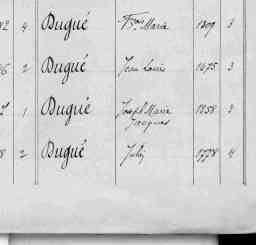 2 4 Dugué Fois Marie 1809 3
6 2 Dugué Jean Louis 1675 3
1 Dugué Joseph Marie 1858 3
Jacques
8 2 Dugué 1778 4